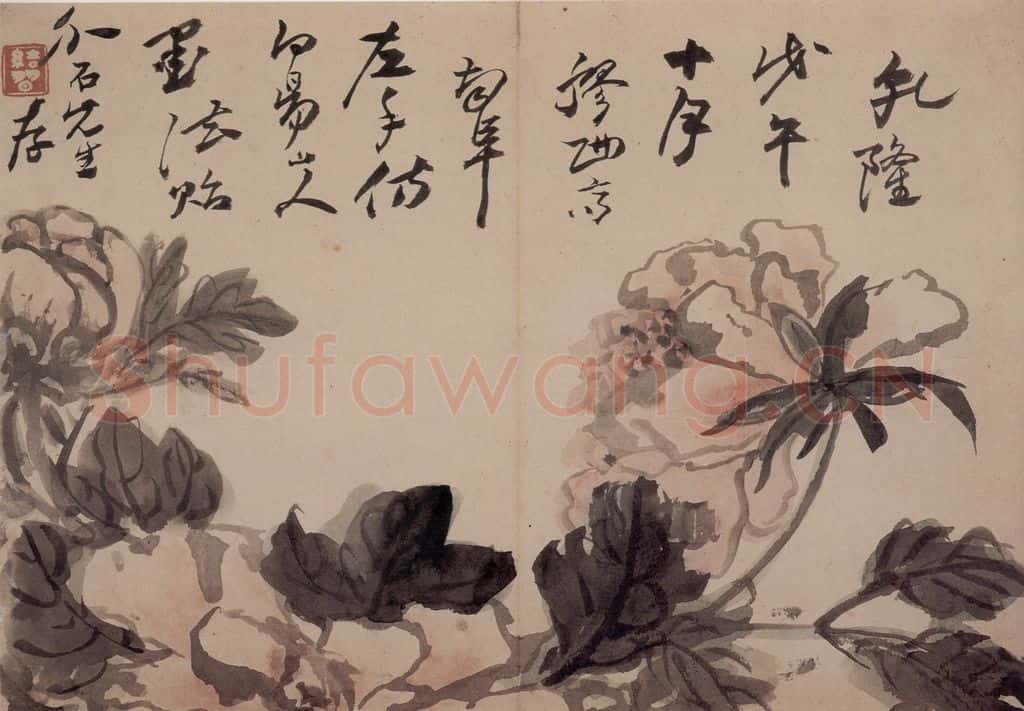 乾隆
戊午
十月
膠西高
南阜
左手仿
白昜山人
墨法貽
介石先生
存
Shufawang.CN